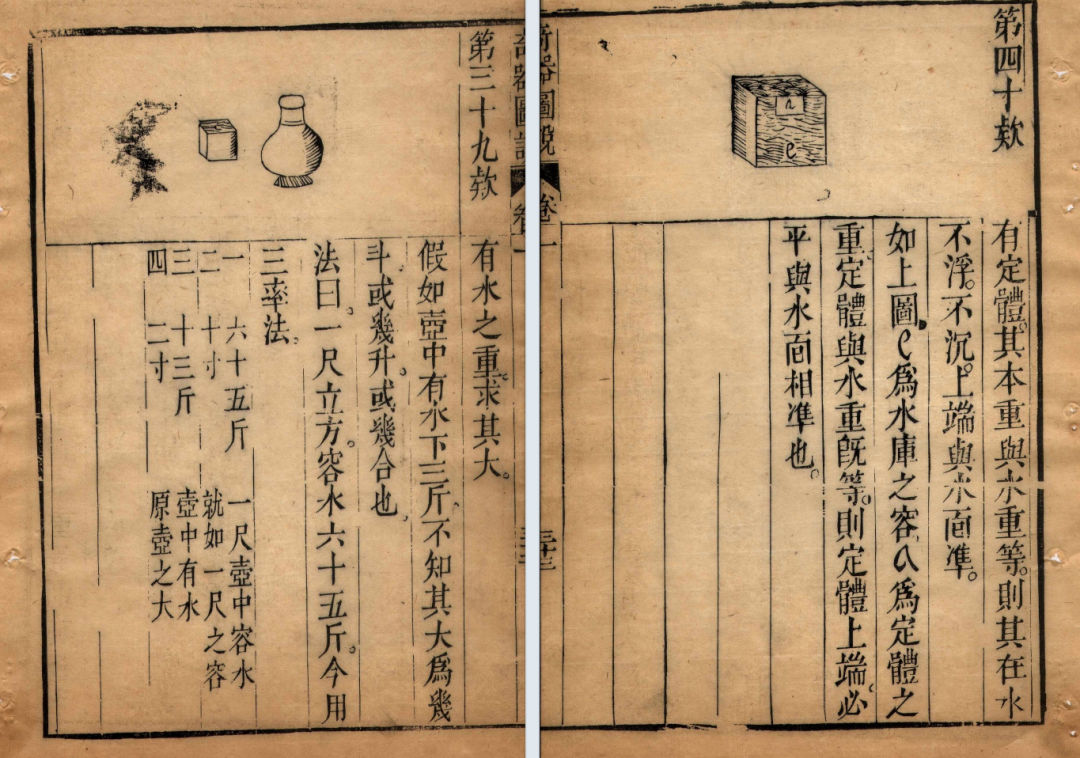 第三十九欵
有水之重。求其大。
假如壺中有水十三斤。不知其大爲幾
斗。或幾升。或幾合也。
法曰。一尺立方。容水六十五斤。今用
三率法。
一 六十五斤 一尺壺中容水
二 十寸 就如一尺之容
三 十三斤 壺中有水
四 二寸 原壺之大
奇器圖說 卷一 三十三
第四十欵
a
e
有定體。其本重與水重等。則其在水
不浮。不沉。上端與水面準。
如上圖。e爲水庫之容。a爲定體之
重。定體與水重旣等。則定體上端。必
平與水面相準也。